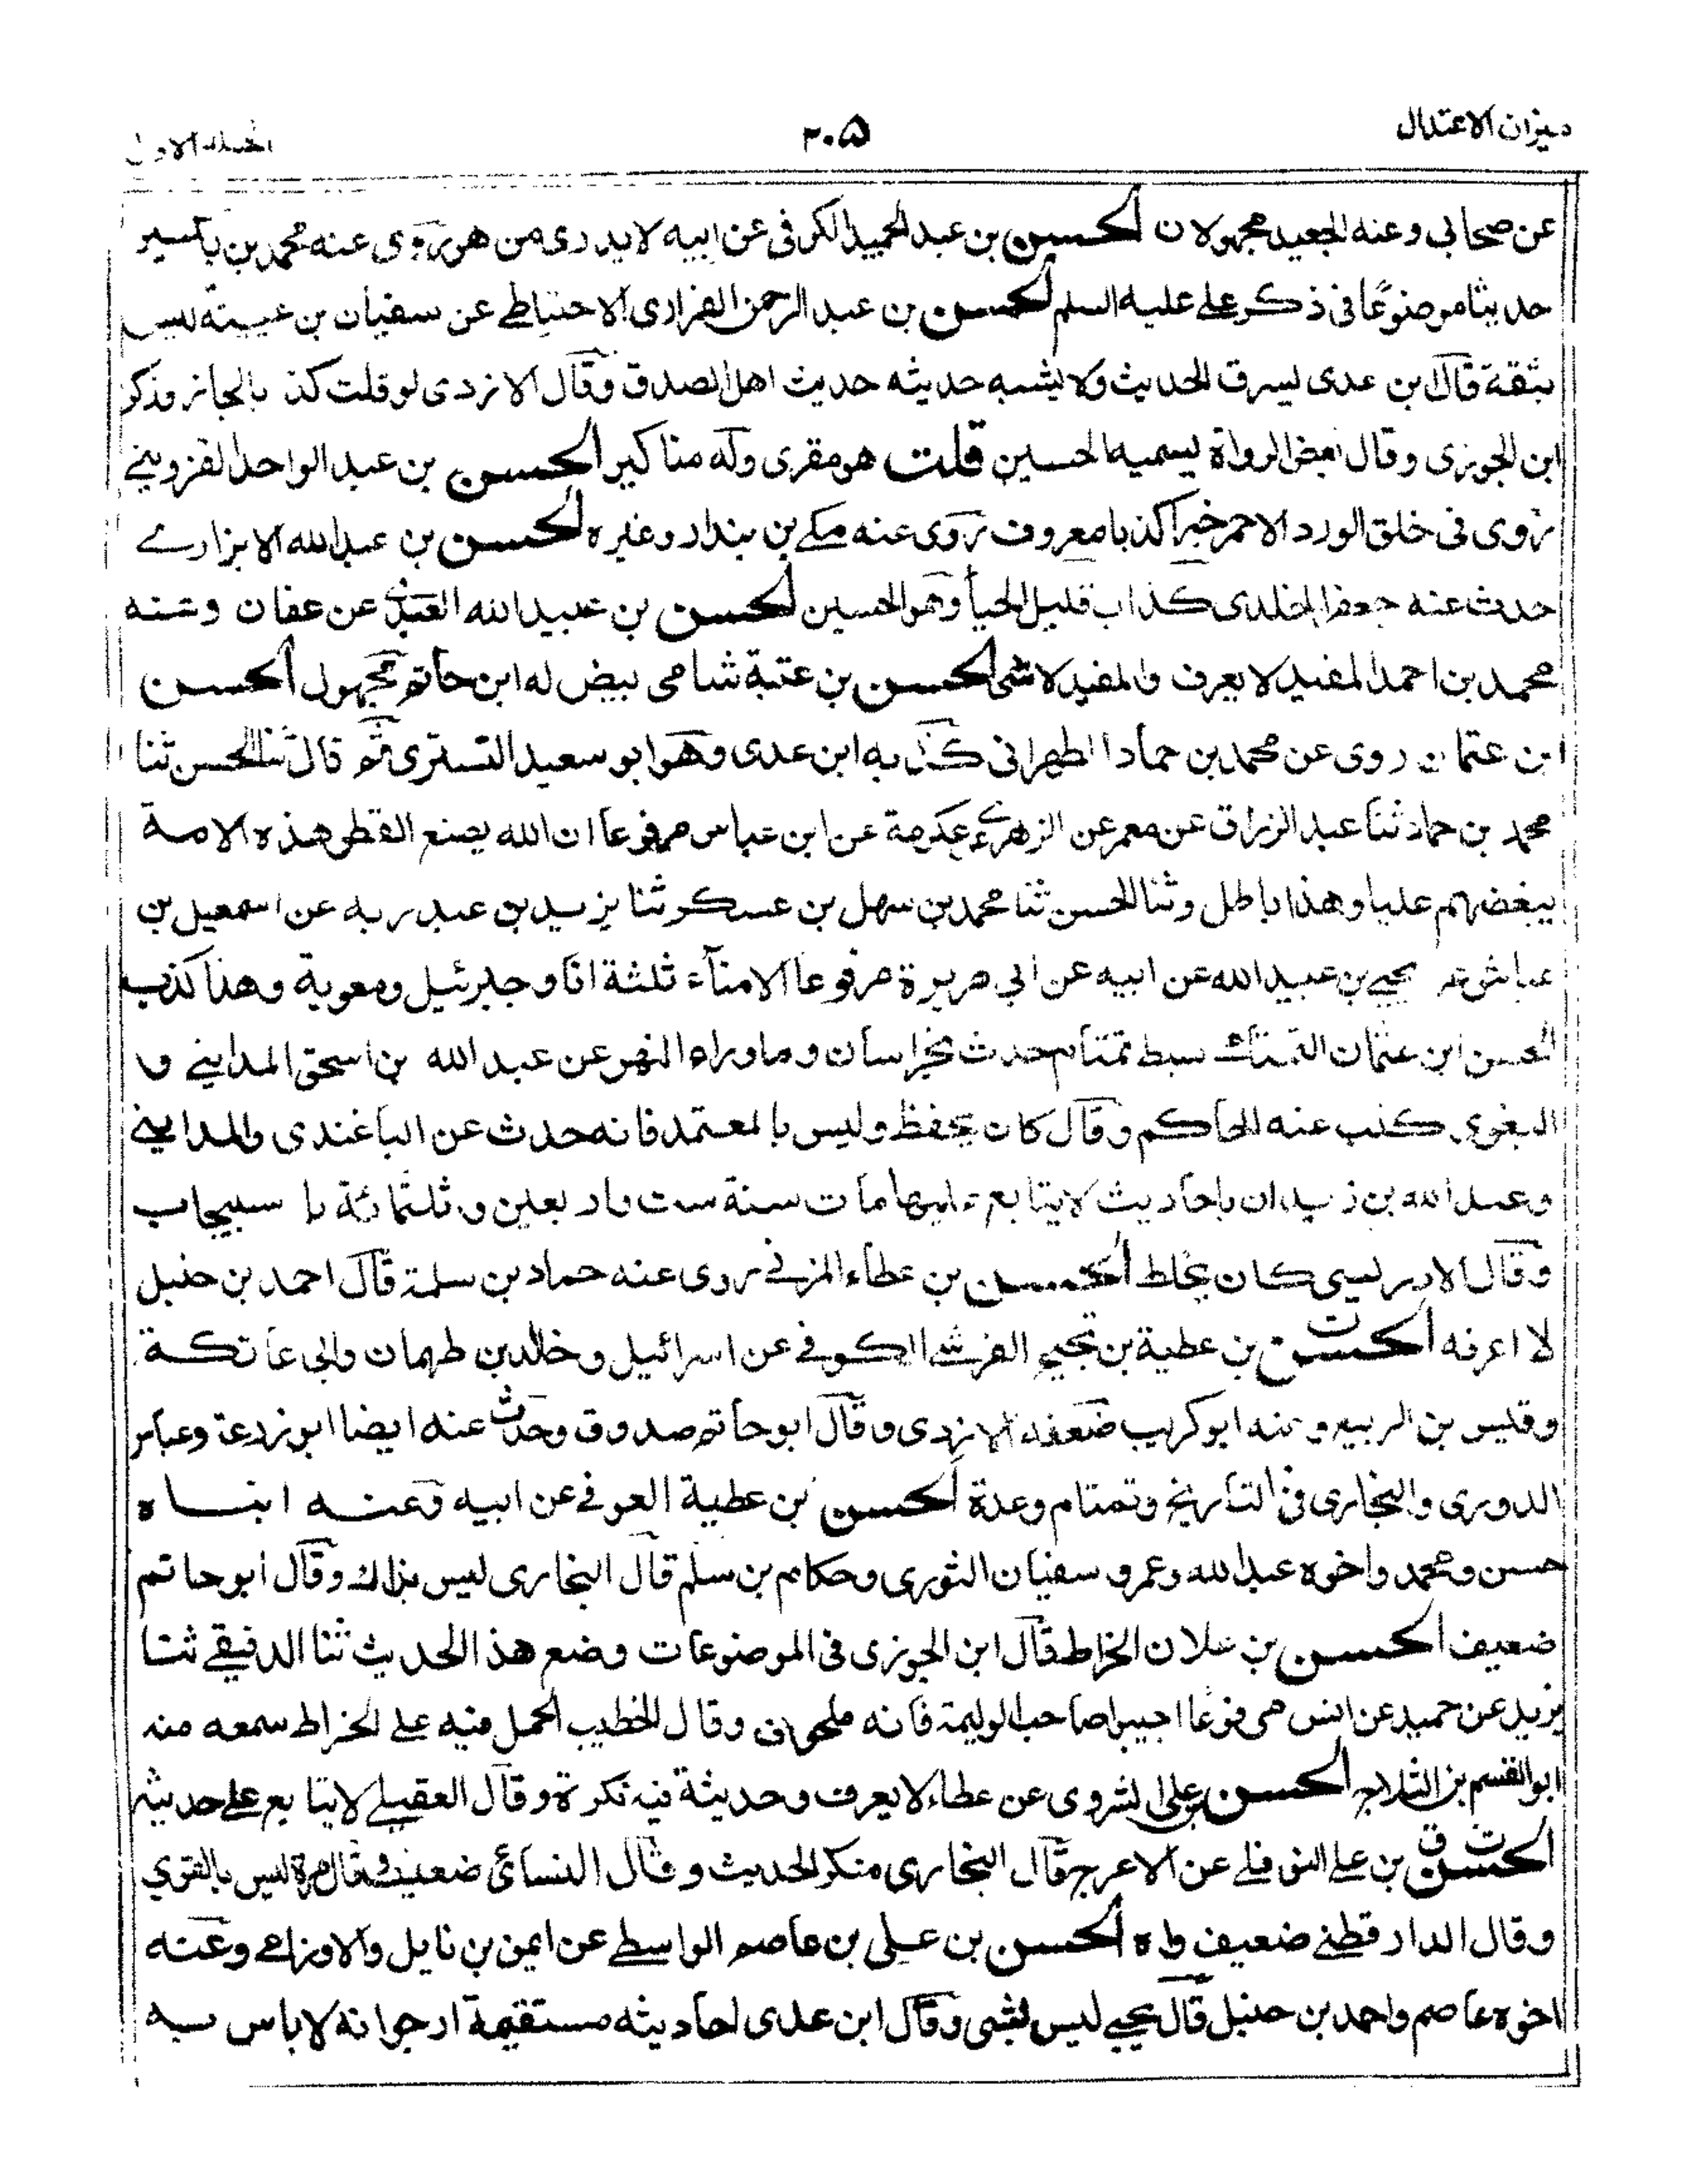 ميزان الاعتدال
٢٠٥
المجلد الاول
عن صحابي وعنه الجعيد مجهولان الحسن بن عبد الحميد الكوفى عن ابيه لا يدرى من هو روى عنه محمد بن بكير
حديثا موضوعا فى ذكر على عليه السلم الحسن بن عبد الرحمن الفزارى الاحتياطے عن سفيان بن عيينة ليس
بثقة قال ابن عدى يسرق الحديث ولا يشبه حديثه حديث اهل الصدق وقال الازدى لو قلت كذ بالجاز وذكر
ابن الجوزى وقال بعض الرواة يسميه الحسين قلت هو مقرى وله مناكير الحسن بن عبد الواحد القزوينے
روى فى خلق الورد الاحمر خبرا كذبا معروف روى عنه مكے بن بندار وغيره الحسن بن عبد الله الابزارے
حدث عنه جعفر الخلدى كذاب قليل الحيأ وهو الحسين الحسن بن عبيد الله العبدى عن عفان وعنه
محمد بن احمد المفيد لا يعرف والمفيد لا شى الحسن بن عتبة شامى بيض له ابن حاتم مجهول الحسن
ابن عثمان روى عن محمد بن حماد الطهرانى كذبه ابن عدى وهو ابو سعيد التسترى ثم قال ثنا الحسن ثنا
محمد بن حماد ثنا عبد الرزاق عن معمر عن الزهرى عكرمة عن ابن عباس مرفوعا ان الله يصنع القطر هذه الامة
ببغضهم عليا وهذا باطل وثنا الحسن ثنا محمد بن سهل بن عسكر ثنا يزيد بن عبد ربه عن اسمعيل بن
عياش عن يحيے بن عبيد الله عن ابيه عن ابى هريرة مرفوعا الامنآء ثلثة انا وجبرئيل ومعوية وهذا كذب
الحسن ابن عثمان التمتامى سبط تمتام حدث بخراسان وما وراء النهر عن عبد الله بن اسحق المداينے و
البغوى كذب عنه الحاكم وقال كان يحفظ وليس بالمعتمد فانه حدث عن الباغندى والمداينے
وعبد الله بن زيدان باحاديث لا يتابع عليها مات سنة ست واربعين وثلثمائة با سبيجاب
وقال الادريسى كان يخلط الحسن بن عطاء المزنے روى عنه حماد بن سلمة قال احمد بن حنبل
لا اعرفه الحسن ت بن عطية بن نجيح القرشى الكوفے عن اسرائيل وخالد بن طهمان وابى عاتكة
وقيس بن الربيع وعنه ابو كريب ضعفه الازدى وقال ابو حاتم صدوق وحدث عنه ايضا ابو زرعة وعباس
الدورى والبخارى فى التاريخ وتمتام وعدة الحسن بن عطية العوفے عن ابيه وعنه ابناه
حسن ومحمد واخوه عبد الله وعمرو سفيان الثورى وحكام بن سلم قال البخارى ليس بذاك وقال ابو حاتم
ضعيف الحسن بن علان الخراط قال ابن الجوزى فى الموضوعات وضع هذ الحديث ثنا الدقيقے ثنا
يزيد عن حميد عن انس مرفوعا اجيبوا صاحب الوليمة فانه ملهوف وقال الخطيب الحمل فيه علے الخراط سمعه منه
ابو القسم بن الثلاج الحسن بن على الشروى عن عطاء لا يعرف وحديثة فيه نكرة وقال العقيلے لا يتابع علے حديثه
الحسن ت ق بن علے النوفلے عن الاعرج قال البخارى منكر الحديث وقال النسائى ضعيف وقال مرة ليس بالقوي
وقال الدارقطنے ضعيف واه الحسن بن على بن عاصم الواسطے عن ايمن بن نابل والاوزاعے وعنه
اخوه عاصم واحمد بن حنبل قال يحيے ليس بشى وقال ابن عدى احاديثه مستقيمة ارجوانه لا باس به